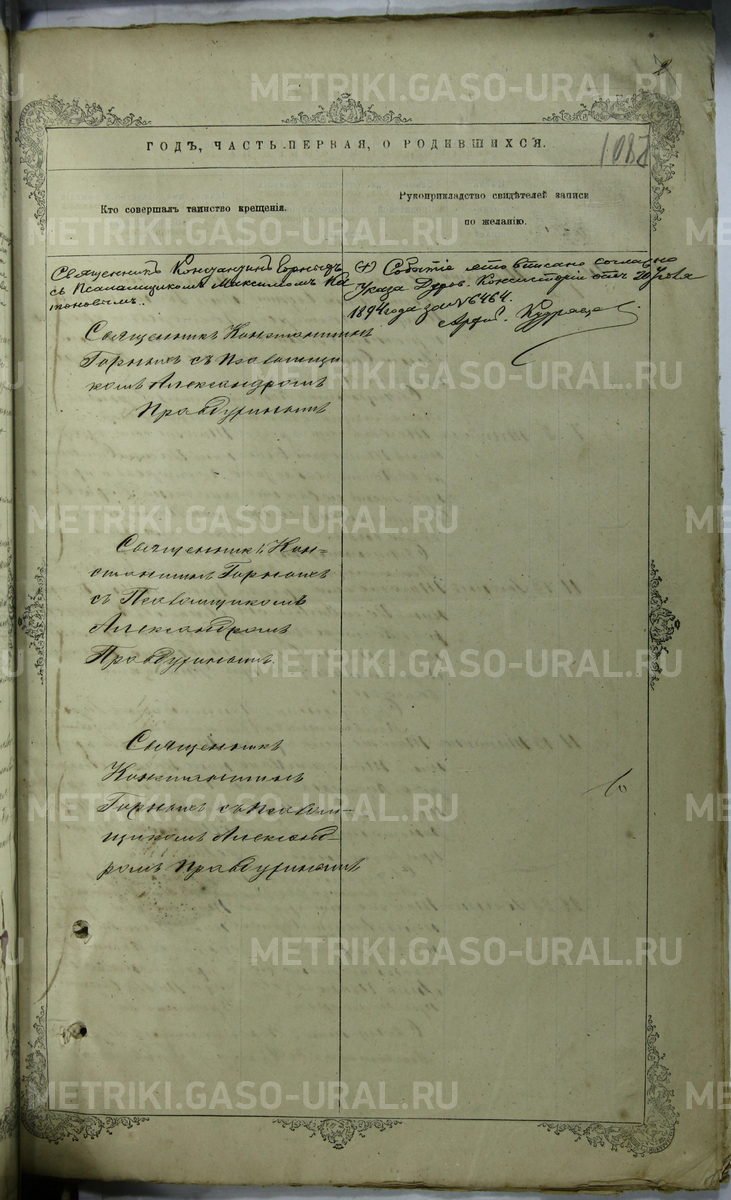 ГОДЪ, ЧАСТЬ ПЕРВАЯ, О РОДИВШИХСЯ.
1087
Кто совершалъ таинство крещенія.
Рукоприкладство свидѣтелей записи
по желанію.
Священникъ Константинъ Горныхъ
съ Псаломщикомъ Максимомъ Пла
тоновымъ.
(+) Событіе это вписано согласно
Указа Духов. Консисторіи отъ 20
1894 года за № 6464.
Священникъ Константинъ
Горныхъ съ Псаломщи
комъ Александромъ
Правдуринымъ
Священникъ Кон=
стантинъ Горныхъ
съ Псаломщикомъ
Александромъ
Правдуринымъ.
Священникъ
Константинъ
Горныхъ съ Псалом-
щикомъ Александ-
ромъ Правдуринымъ
METRIKI.GASO-URAL.RU